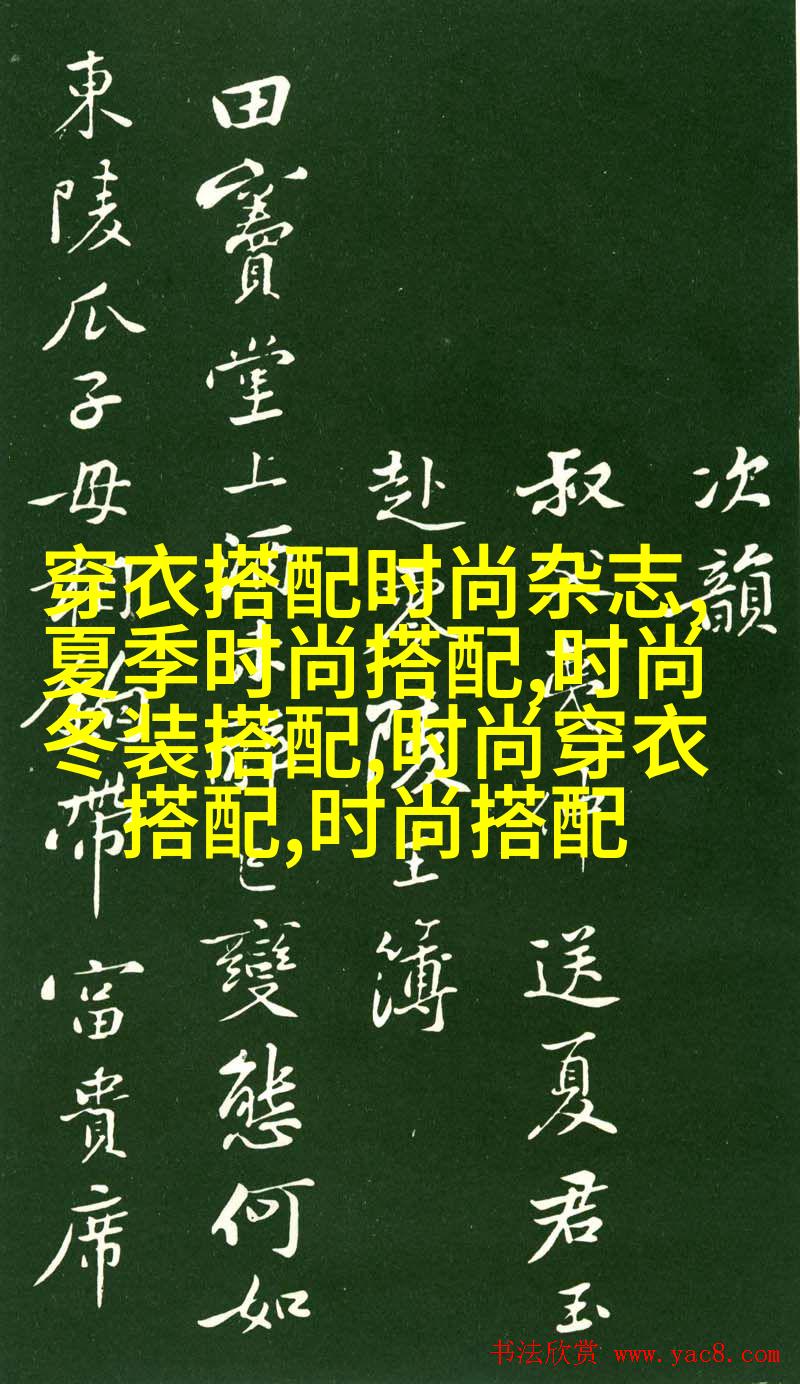 次韻
叔父夷仲送夏君玉
赴零陵主簿
田竇堂上酒未已變態何如
東陵瓜子母相鉤帶富貴席
穿衣搭配时尚杂志,
夏季时尚搭配,时尚
冬装搭配,时尚穿衣
搭配,时尚搭配
书法欣赏 www.yac8.com